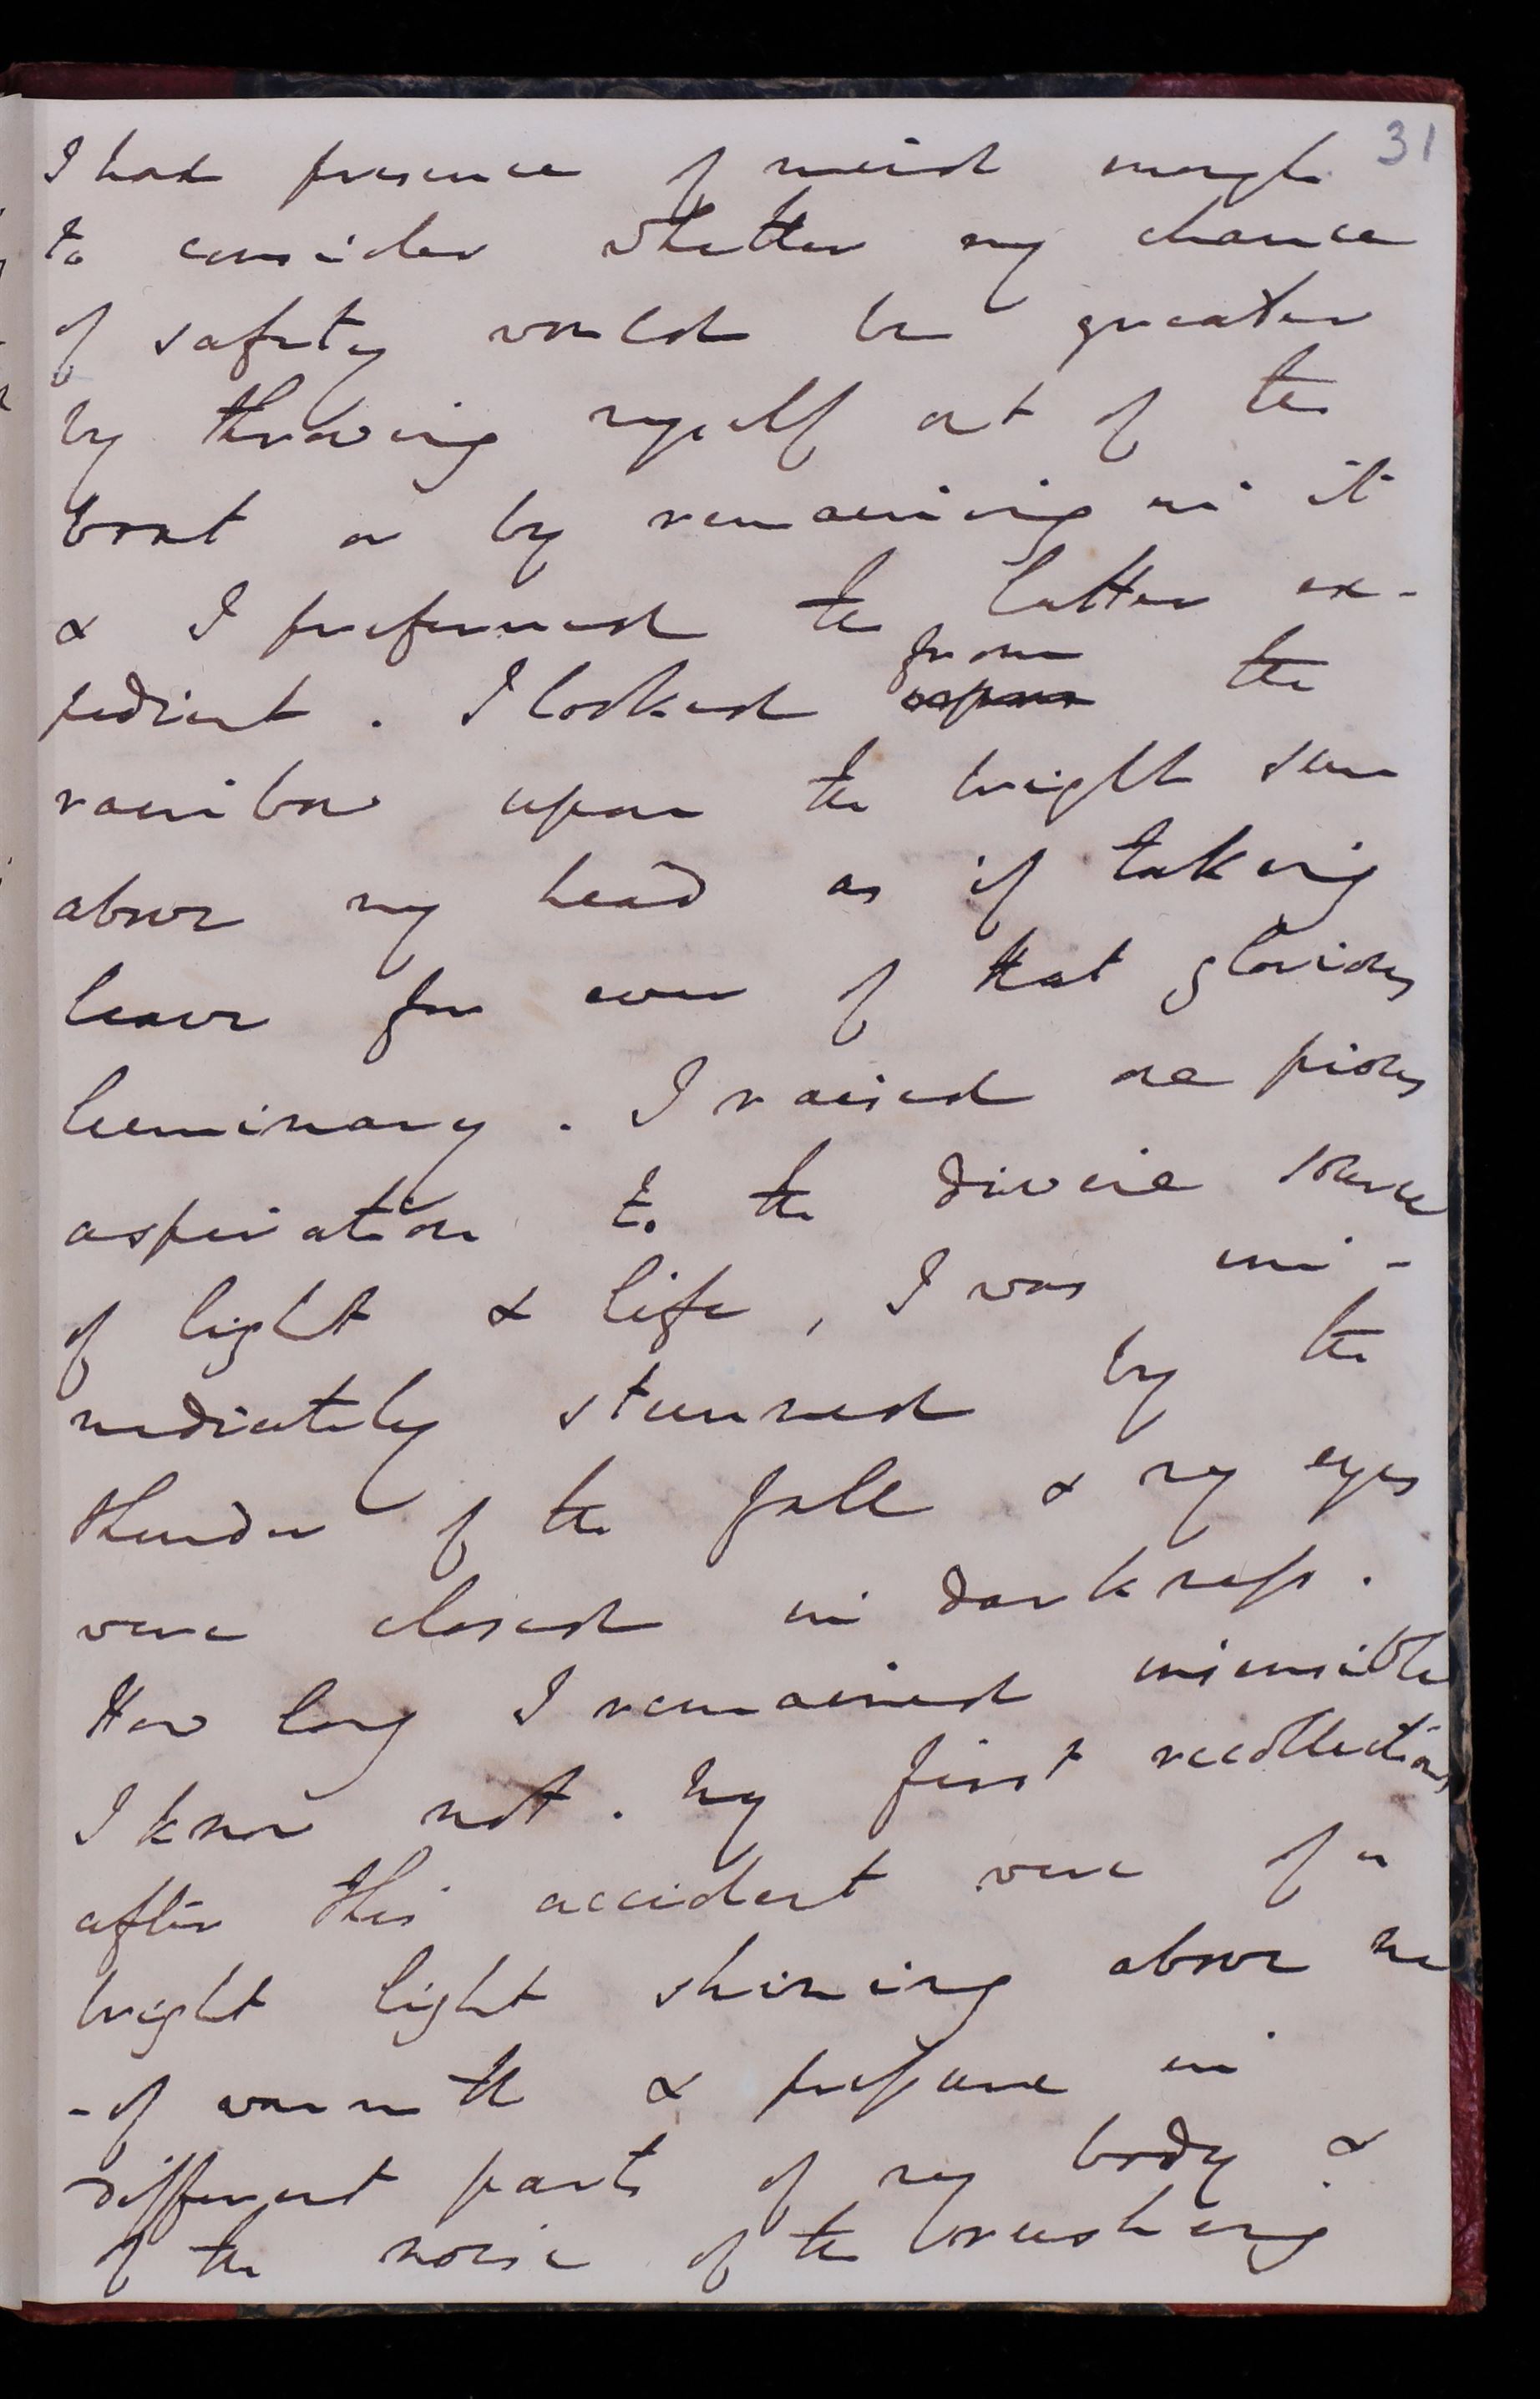 31
I had presence of mind enough
to consider whether my chance
of safety would be greater
by throwing myself out of the
boat or by remaining in it
& I preferred the latter ex-
pedient. I looked from the
rainbow upon the bright sun
above my head as if taking
leave for ever of that glorious
luminary. I raised one pious
aspiration to the divine source
of light & life, I was im-
mediately stunned by the
thunder of the fall & my eyes
were closed in darkness.
How long I remained insensible
I know not. My first recollections
after this accident were of a
bright light shining above me
- of warmth & pressure in
different parts of my body &
of the noise of the rushing